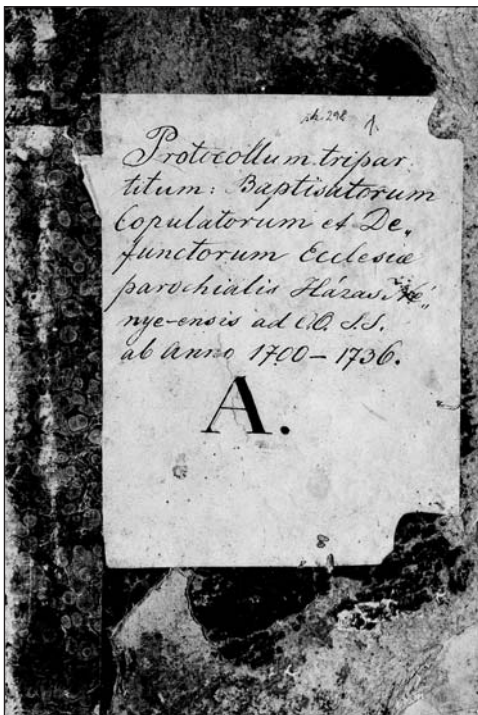 sk. 298
Protocollum tripar
titum: Baptisatorum
Copulatorum et De„
functorum Ecclesiæ
parochialis Házas
nye-ensis ad OO. S.S.
ab Anno 1700 – 1736.
A.